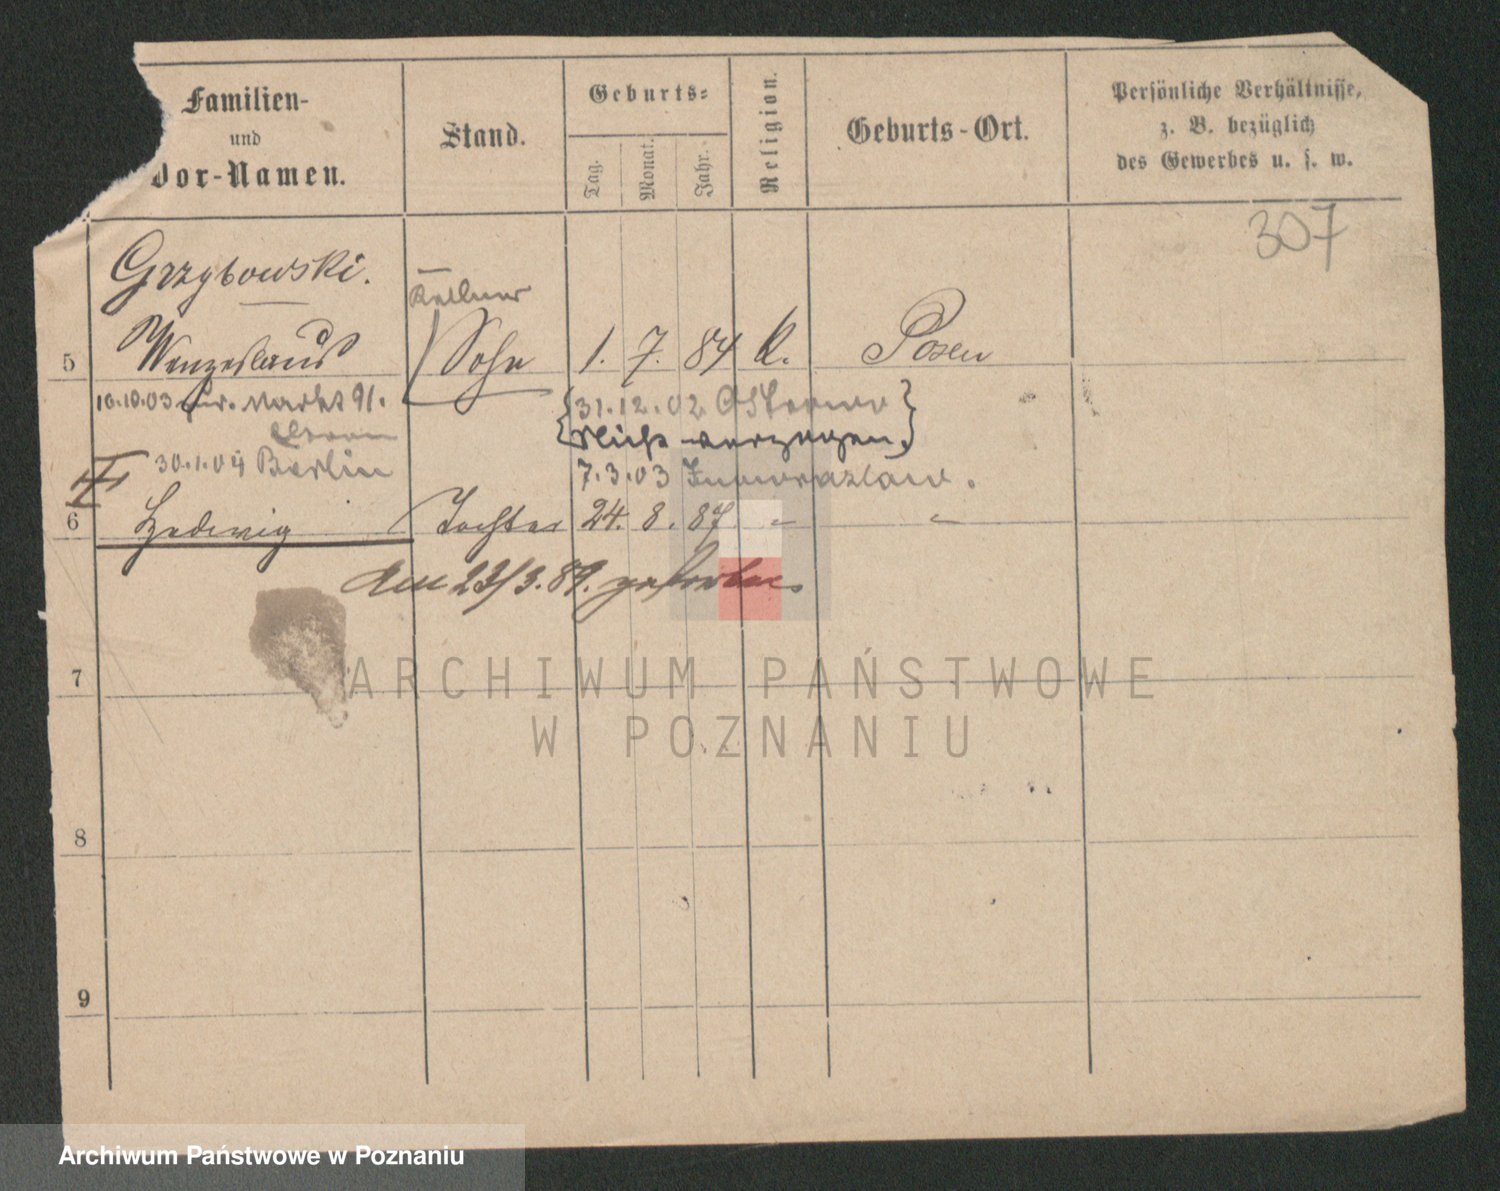 Familien-
und
Vor-Namen.
Stand.
Geburts-
Tag.
Monat.
Jahr.
Religion.
Geburts-Ort.
Persönliche Verhältnisse,
z. B. bezüglich
des Gewerbes u. s. w.
307
Grzybowski.
Kellner
5 Wenzeslaus Sohn 1. 7. 84 k. Posen
10.10.03 Markt 91.
Eltern
31.12.02
Nicht verzogen.
30.1.04 Berlin
7.3.03 Inowrazlaw.
6 Hedwig Tochter 24. 8. 87 " "
den 23/3.89. gestorben
7
8
9
ARCHIWUM PAŃSTWOWE
W POZNANIU
Archiwum Państwowe w Poznaniu